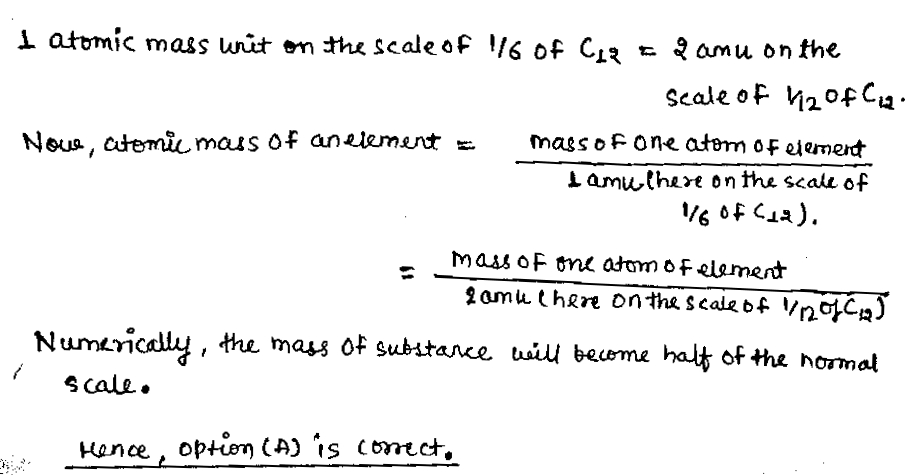 1 atomic mass unit on the scale of 1/6 of C12 = 2 amu on the
scale of 1/12 of C12.
Now, atomic mass of an element = mass of one atom of element
1 amu (here on the scale of
1/6 of C12).
= mass of one atom of element
2 amu (here on the scale of 1/12 of C12)
Numerically, the mass of substance will become half of the normal
scale.
Hence, option (A) is correct.